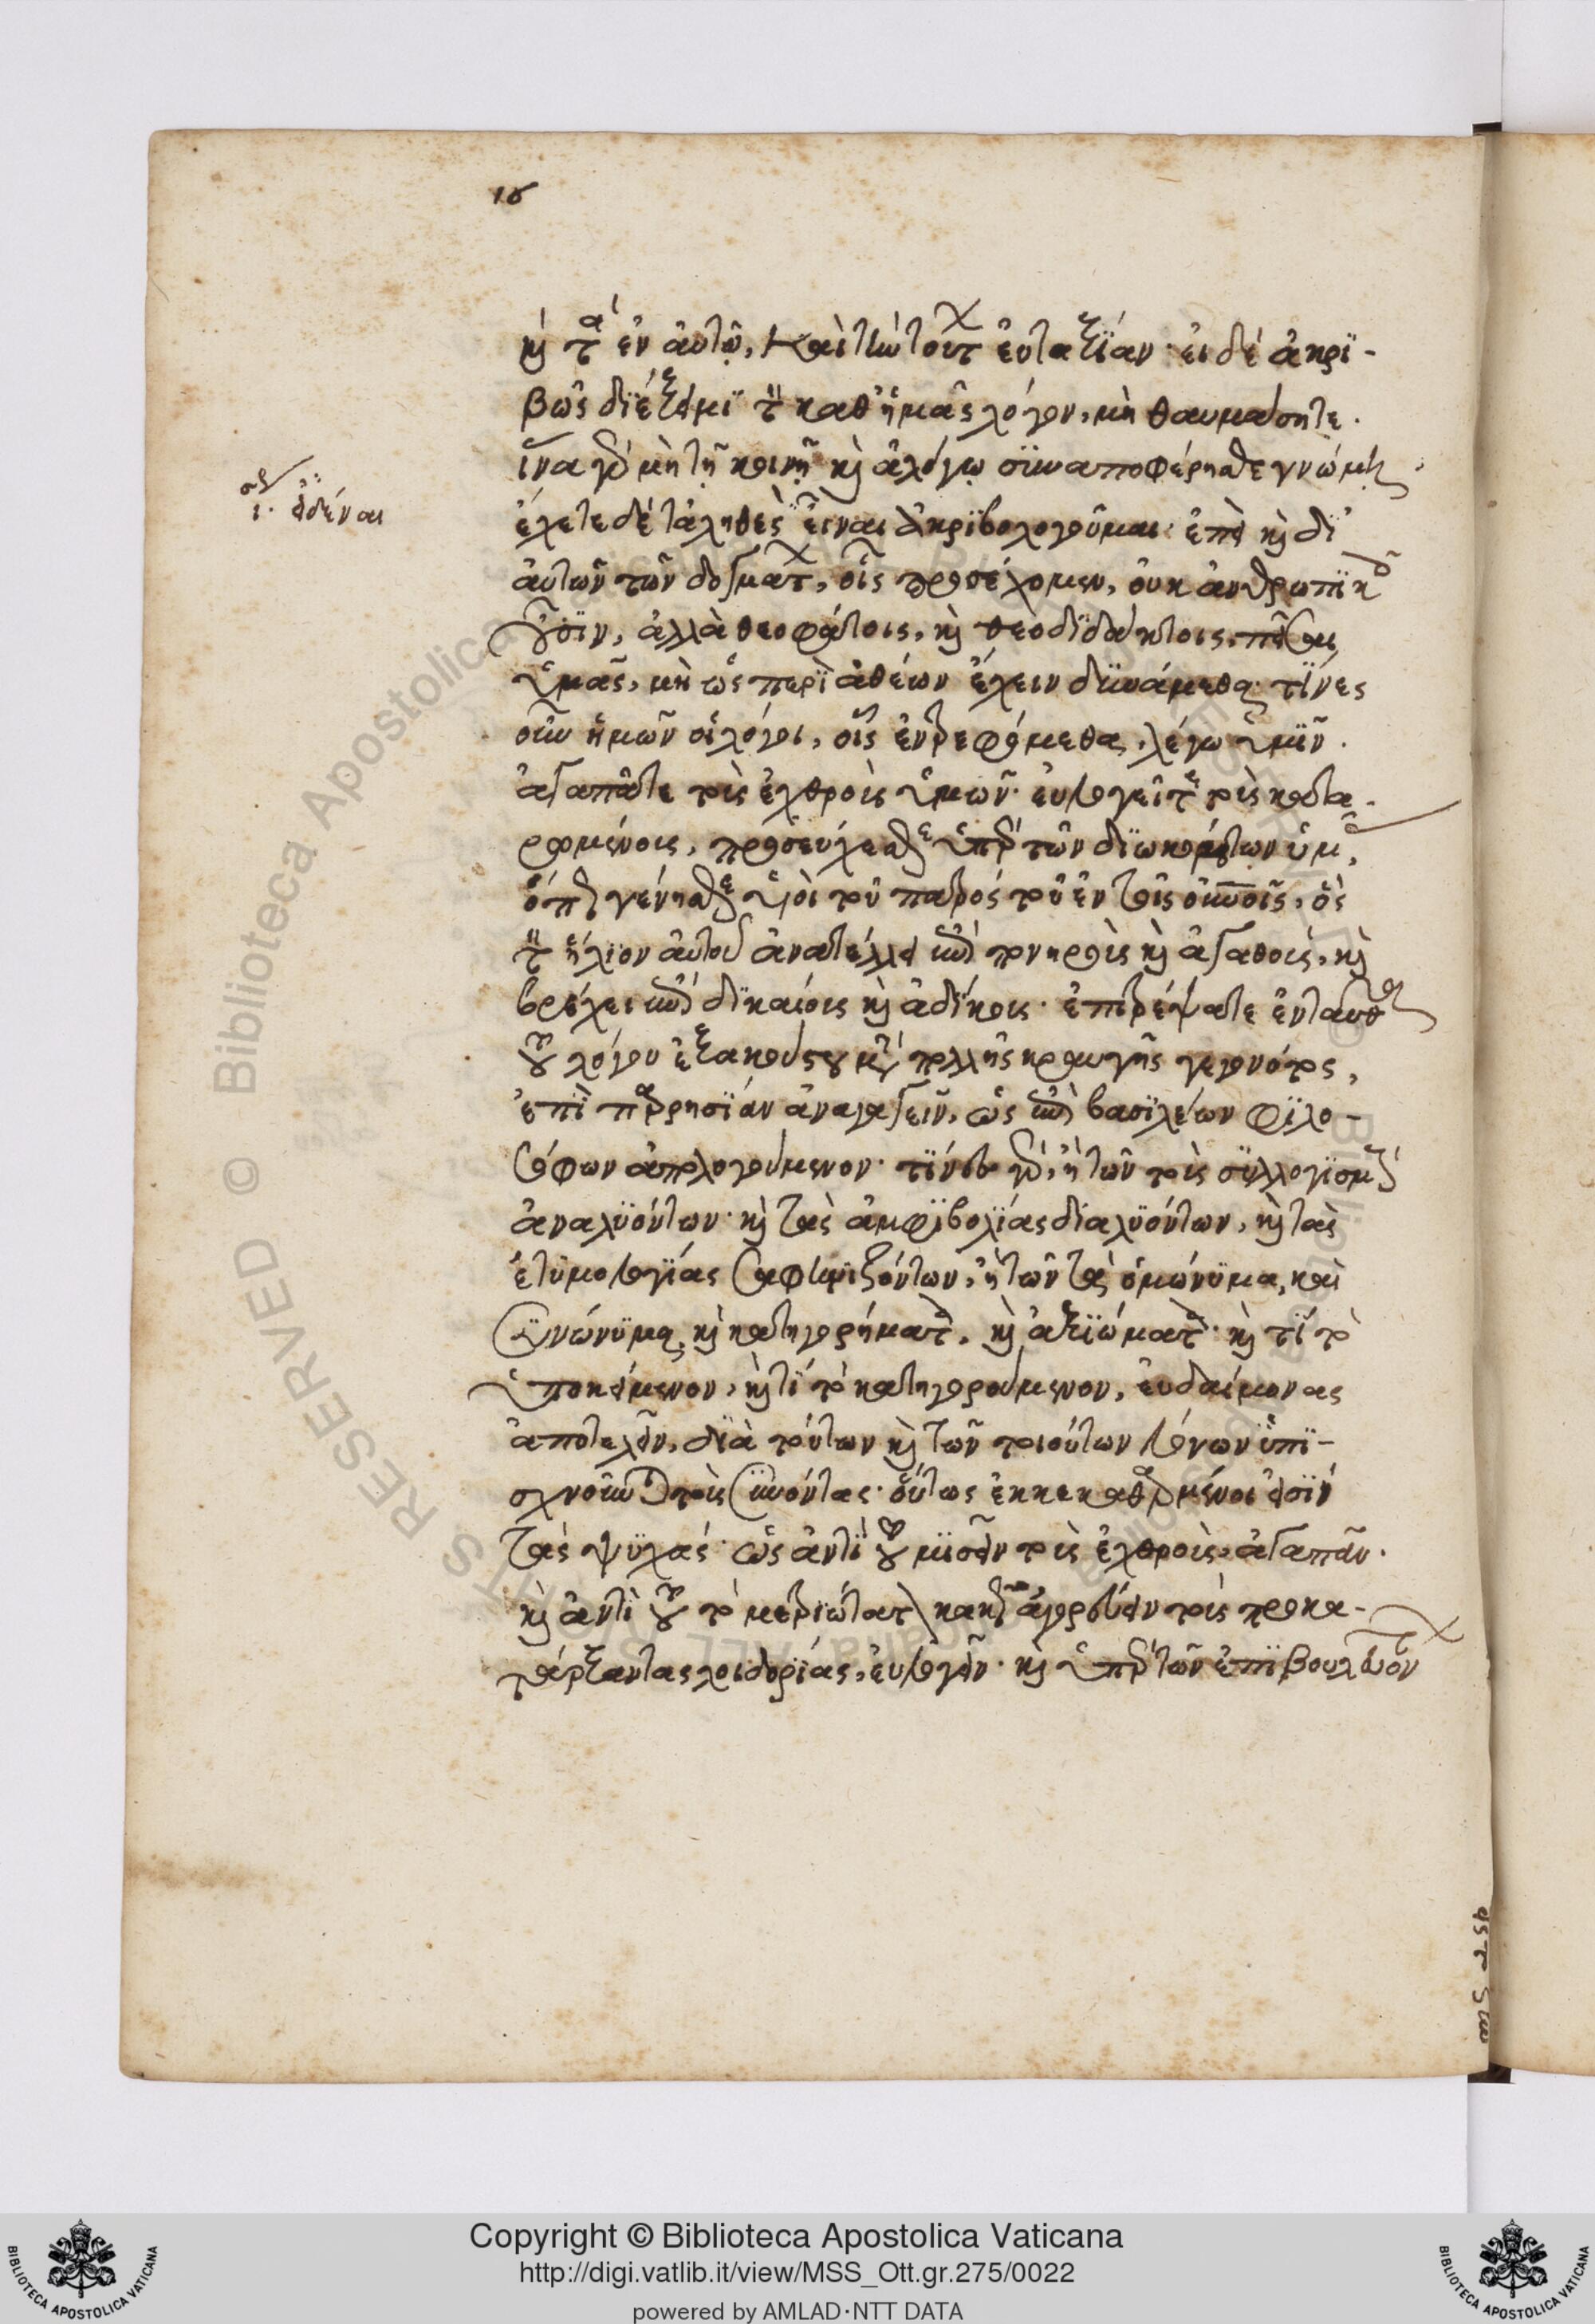 16
καὶ τὰ ἐν αὐτῷ, καὶ τὴν τούτων εὐταξίαν· εἰ δὲ ἀκρι-
βῶς διέξειμι τὸν καθ' ἡμᾶς λόγον, μὴ θαυμάσητε.
ἵνα γὰρ μὴ τῇ κοινῇ καὶ ἀλόγῳ συναποφέρησθε γνώμῃ,
ἔχετε δὲ τἀληθὲς εἶναι ἀκριβολογοῦμαι· ἐπεὶ καὶ δι'
ι. εἰδέναι
αὐτῶν τῶν δογμάτων, οἷς προσέχομεν, οὐκ ἀνθρωπικοῖς
οὖσιν, ἀλλὰ θεοφάτοις, καὶ θεοδιδάκτοις, πεῖσαι
ὑμᾶς, μὴ ὡς περὶ ἀθέων ἔχειν δυνάμεθα· τίνες
οὖν ἡμῶν οἱ λόγοι, οἷς ἐντρεφόμεθα, λέγω ὑμῖν.
ἀγαπᾶτε τοὺς ἐχθροὺς ὑμῶν· εὐλογεῖτε τοὺς κατα-
ρωμένους, προσεύχεσθε ὑπὲρ τῶν διωκόντων ὑμᾶς,
ὅπως γένησθε υἱοὶ τοῦ πατρός τοῦ ἐν τοῖς οὐνοῖς, ὃς
τὸν ἥλιον αὐτοῦ ἀνατέλλει ἐπὶ πονηροὺς καὶ ἀγαθοὺς, καὶ
βρέχει ἐπὶ δικαίους καὶ ἀδίκους· ἐπιτρέψατε ἐνταῦθα
τοῦ λόγου ἐξακούστου μετὰ πολλῆς κραυγῆς γεγονότος,
ἐπὶ παρρησίαν ἀναγαγεῖν, ὡς ἐπὶ βασιλέων φιλο-
σόφων ἀπολογούμενον· τίνες γὰρ, ἢ τῶν τοὺς συλλογισμοὺς
ἀναλυόντων· καὶ τὰς ἀμφιβολίας διαλυόντων, καὶ τὰς
ἐτυμολογίας σαφηνιζόντων, ἢ τῶν τὰ ὁμώνυμα, καὶ
συνώνυμα, καὶ κατηγορήματα, καὶ ἀξιώματα· καὶ τί τὸ
ὑποκείμενον, καὶ τί τὸ κατηγορούμενον, εὐδαίμονας
ἀποτελεῖν, διὰ τούτων καὶ τῶν τοιούτων λόγων ὑπι-
σχνοῦνται τοὺς συνόντας· οὕτως ἐκκεκαθαρμένοι εἰσὶν
τὰς ψυχὰς· ὡς ἀντὶ τοῦ μισεῖν τοὺς ἐχθροὺς, ἀγαπᾶν.
καὶ ἀντὶ τοῦ τὸ μετριώτατον κακῶς ἀγορεύειν τοὺς προκα-
τάρξαντας λοιδορίας, εὐλογεῖν· καὶ ὑπὲρ τῶν ἐπιβουλευόντων